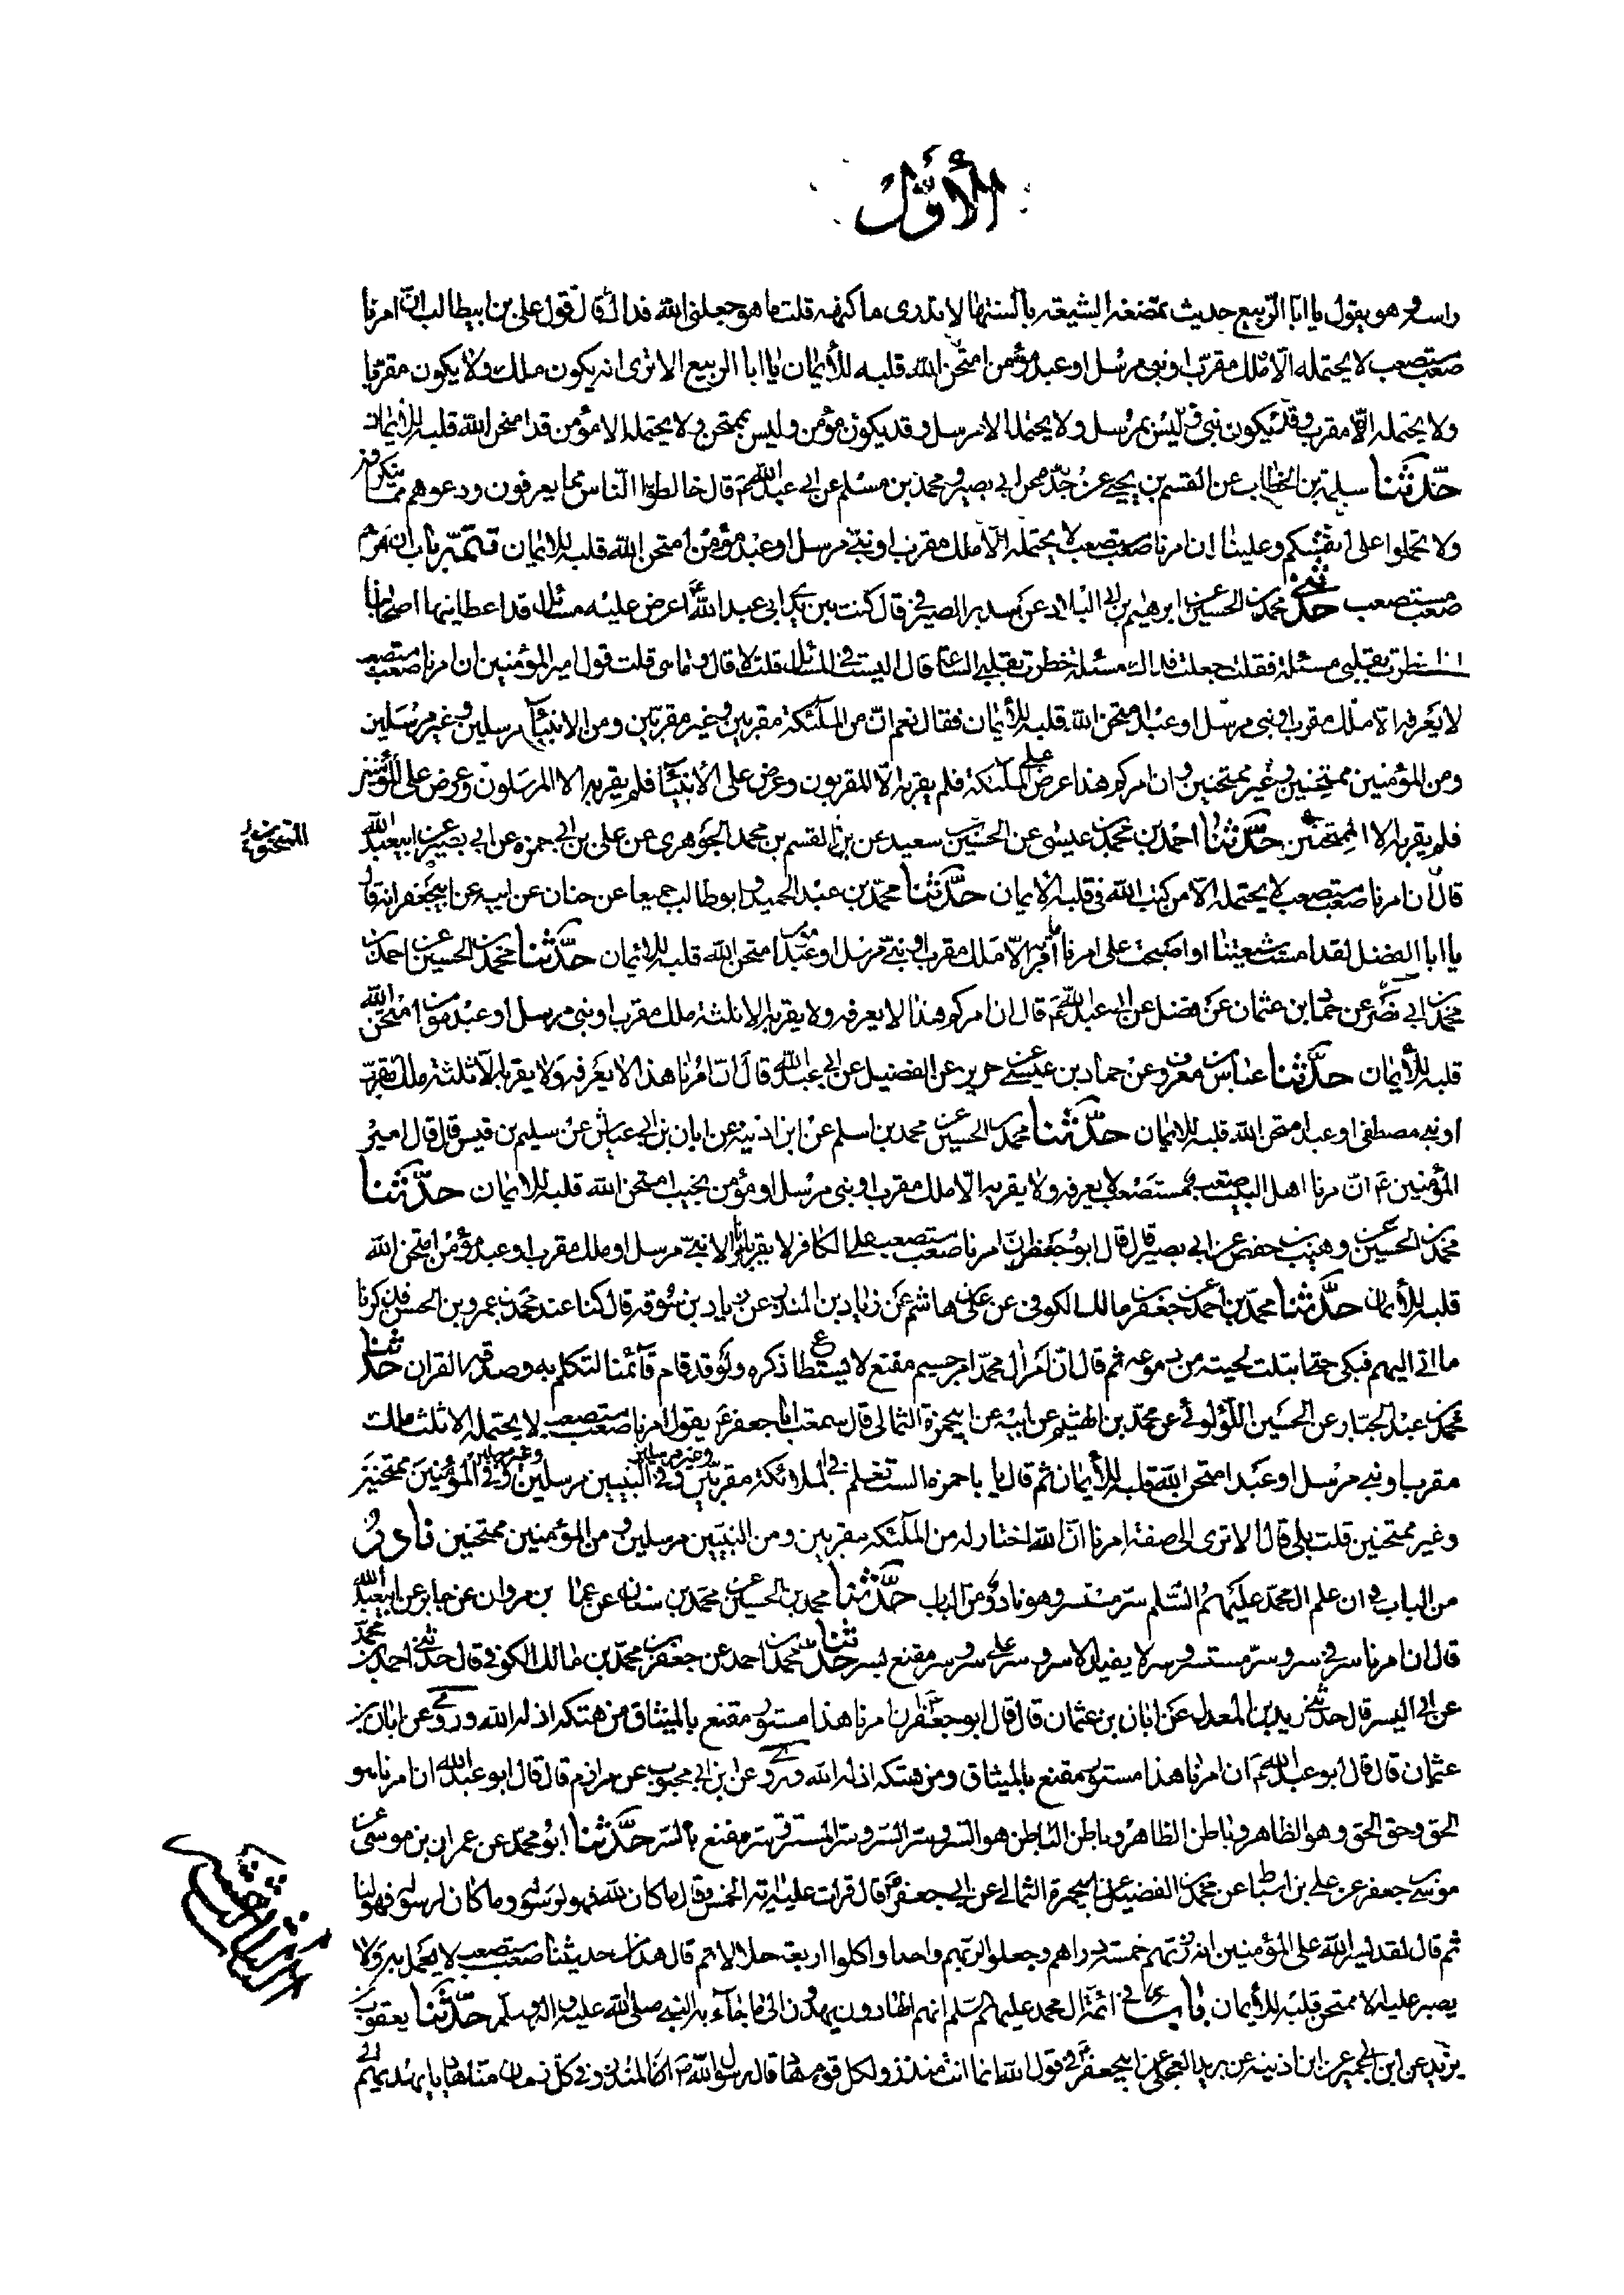 الأوّل
راسه وهو يقول يا ابا الربيع حديث تمضغه الشيعة بالسنتها لا تدرى ما كنهه قلت ما هو جعلنى الله فداك قال قول على بن ابيطالب انّ امرنا
صعب مستصعب لا يحتمله الّا ملك مقرّب او نبى مرسل او عبد مؤمن امتحن الله قلبه للأيمان يا ابا الربيع الا ترى انه يكون ملك ولا يكون مقربا
ولا يحتمله الّا مقرب وقد يكون نبى وليس بمرسل ولا يحتمله الا مرسل وقد يكون مؤمن وليس بممتحن ولا يحتمله الا مؤمن قد امتحن الله قلبه للأيمان
حدّثنا سلمة بن الخطاب عن القسم بن يحيى عن جدّه عن ابى بصير ومحمد بن مسلم عن ابى عبد الله ع قال خالطوا الناس بما يعرفون ودعوهم مما ينكرون
ولا تحملوا على انفسكم وعلينا ان امرنا صعب مستصعب لا يحتمله الّا ملك مقرب او نبىّ مرسل او عبد مؤمن امتحن الله قلبه للايمان تتمّة باب ان امرهم
صعب مستصعب حدّثنى محمد بن الحسين عن ابرهيم بن ابى البلاد عن سدير الصيرفى قال كنت بين يدى ابى عبد الله ع اعرض عليه مسائل قد اعطانيها اصحابنا
اذ خطرت بقلبى مسئلة فقلت جعلت فداك مسئلة خطرت بقلبى الساعة قال اليست فى المسائل قلت لا قال وما هى قلت قول امير المؤمنين ان امرنا صعب مستصعب
لا يعرفه الا ملك مقرب او نبى مرسل او عبد امتحن الله قلبه للأيمان فقال نعم انّ من الملئكة مقربين وغير مقربين ومن الانبياء مرسلين وغير مرسلين
ومن المؤمنين ممتحنين وغير ممتحنين وان امركم هذا عرض على الملئكة فلم يقر به الّا المقربون وعرض على الأنبياء فلم يقر به الا المرسلون وعرض على المؤمنين
فلم يقر به الا الممتحنين حدّثنا احمد بن محمد بن عيسى عن الحسين بن سعيد عن القسم بن محمد الجوهرى عن على بن ابى حمزه عن ابى بصير عن ابيعبد الله
قال ان امرنا صعب مستصعب لا يحتمله الّا من كتب الله فى قلبه الأيمان حدّثنا محمّد بن عبد الحميد وابو طالب جميعا عن حنان عن ابيه عن ابيجعفر انه قال
يا ابا الفضل لقد امست شيعتنا او اصبحت على امرنا ما اقر به الّا ملك مقرب او نبىّ مرسل او عبد مومن امتحن الله قلبه للايمان حدّثنا محمد بن الحسين عن احمد بن
محمد بن ابى نصر عن حماد بن عثمان عن فضل عن ابى عبد الله ع قال ان امركم هذا لا يعرفه ولا يقر به الا ثلثة ملك مقرب او نبى مرسل او عبد مومن امتحن الله
قلبه للأيمان حدّثنا عباس بن معروف عن حماد بن عيسى عن حريز عن الفضيل عن ابى عبد الله قال انّ امرنا هذا لا يعرفه ولا يقر به الا ثلثة ملك مقرّب
او نبى مصطفى او عبد امتحن الله قلبه للايمان حدّثنا محمد بن الحسين عن محمد بن اسلم عن ابن اذينه عن ابان بن ابى عياش عن سليم بن قيس قال قال امير
المؤمنين ع انّ امرنا اهل البيت صعب مستصعب لا يعرفه ولا يقر به الّا ملك مقرب او نبى مرسل او مؤمن نجيب امتحن الله قلبه للايمان حدّثنا
محمد بن الحسين عن وهيب بن حفص عن ابى بصير قال قال ابو جعفر انّ امرنا صعب مستصعب على الكافر لا يقر بامرنا الا نبىّ مرسل او ملك مقرب او عبد مؤمن امتحن الله
قلبه للأيمان حدّثنا محمّد بن احمد عن جعفر بن مالك الكوفى عن على بن هاشم عن زياد بن المنذر عن زياد بن سوقه قال كنا عند محمد بن عمرو بن الحسن فذكرنا
ما اتى اليهم فبكى حتى ابتلت لحيته من دموعه ثم قال انّ امر ال محمّد امر جسيم مقنع لا يستطاع ذكره ولو قد قام قآئمنا لتكلم به وصدقه القران حدّثنا
محمد بن عبد الجبّار عن الحسين اللؤلوئى عن محمّد بن الهيثم عن ابيه عن ابيحمزة الثمالى قال سمعت ابا جعفر ع يقول امرنا صعب مستصعب لا يحتمله الا ثلث ملك
مقرب او نبى مرسل او عبد امتحن الله قلبه للأيمان ثم قال يا با حمزه الست تعلم فى الملائكة مقربين وفى النبيين مرسلين وغير مرسلين وفى المؤمنين ممتحنين
وغير ممتحنين قلت بلى قال الا ترى الى صفة امرنا انّ الله اختار له من الملئكه مقربين ومن النبيين مرسلين ومن المؤمنين ممتحنين نادر
من الباب فى ان علم ال محمّد عليهم السّلم سرّ مستسر وهو نادر من الباب حدّثنا محمد بن الحسين عن محمد بن سنان عن عمار بن مروان عن جابر عن ابيعبد الله
قال ان امرنا سر فى سر وسرّ مستسر وسر لا يفيد الا سر وسر على سر وسر مقنع بسر حدّثنا محمد بن احمد عن جعفر بن محمّد بن مالك الكوفى قال حدّثنى احمد بن محمّد
عن ابى اليسر قال حدثنى زيد بن المعدل عن ابان بن عثمان قال قال ابو جعفر ع ان امرنا هذا مستور مقنع بالميثاق من هتكه اذله الله وروى عن ابان بن
عثمان قال قال ابو عبد الله ع ان امرنا هذا مستور مقنع بالميثاق ومن هتكه اذله الله وروى عن ابن ابى محبوب عن مرازم قال قال ابو عبد الله ان امرنا هو
الحق وحق الحق وهو الظاهر وباطن الظاهر وباطن الباطن هو السر وسر السر وسر المستسر وسر مقنع بالسر حدّثنا ابو محمّد عن عمران بن موسى عن
موسى بن جعفر عن على بن اسباط عن محمد بن الفضيل عن ابيحمزة الثمالى عن ابى جعفر ع قال قرات عليه اية الخمس فقال ما كان لله فهو لرسوله وما كان لرسوله فهو لنا
ثم قال لقد يسر الله على المؤمنين انه رزقهم خمسة دراهم وجعلوا لربّهم واحدا واكلوا اربعة حلالا ثم قال هذا من حديثنا صعب مستصعب لا يعمل به ولا
يصبر عليه الا ممتحن قلبه للأيمان باب فى ائمة ال محمد عليهم السّلم انهم الهادون يهدون الى ما جآء به النبى صلى الله عليه واله وسلّم حدّثنا يعقوب بن
يزيد عن ابن ابى عمير عن ابن اذينه عن بريد العجلى عن ابيجعفر ع فى قول الله انما انت منذر ولكل قوم هاد قال رسول الله ص المنذر وفى كلّ زمان منا هاد يهديهم الى